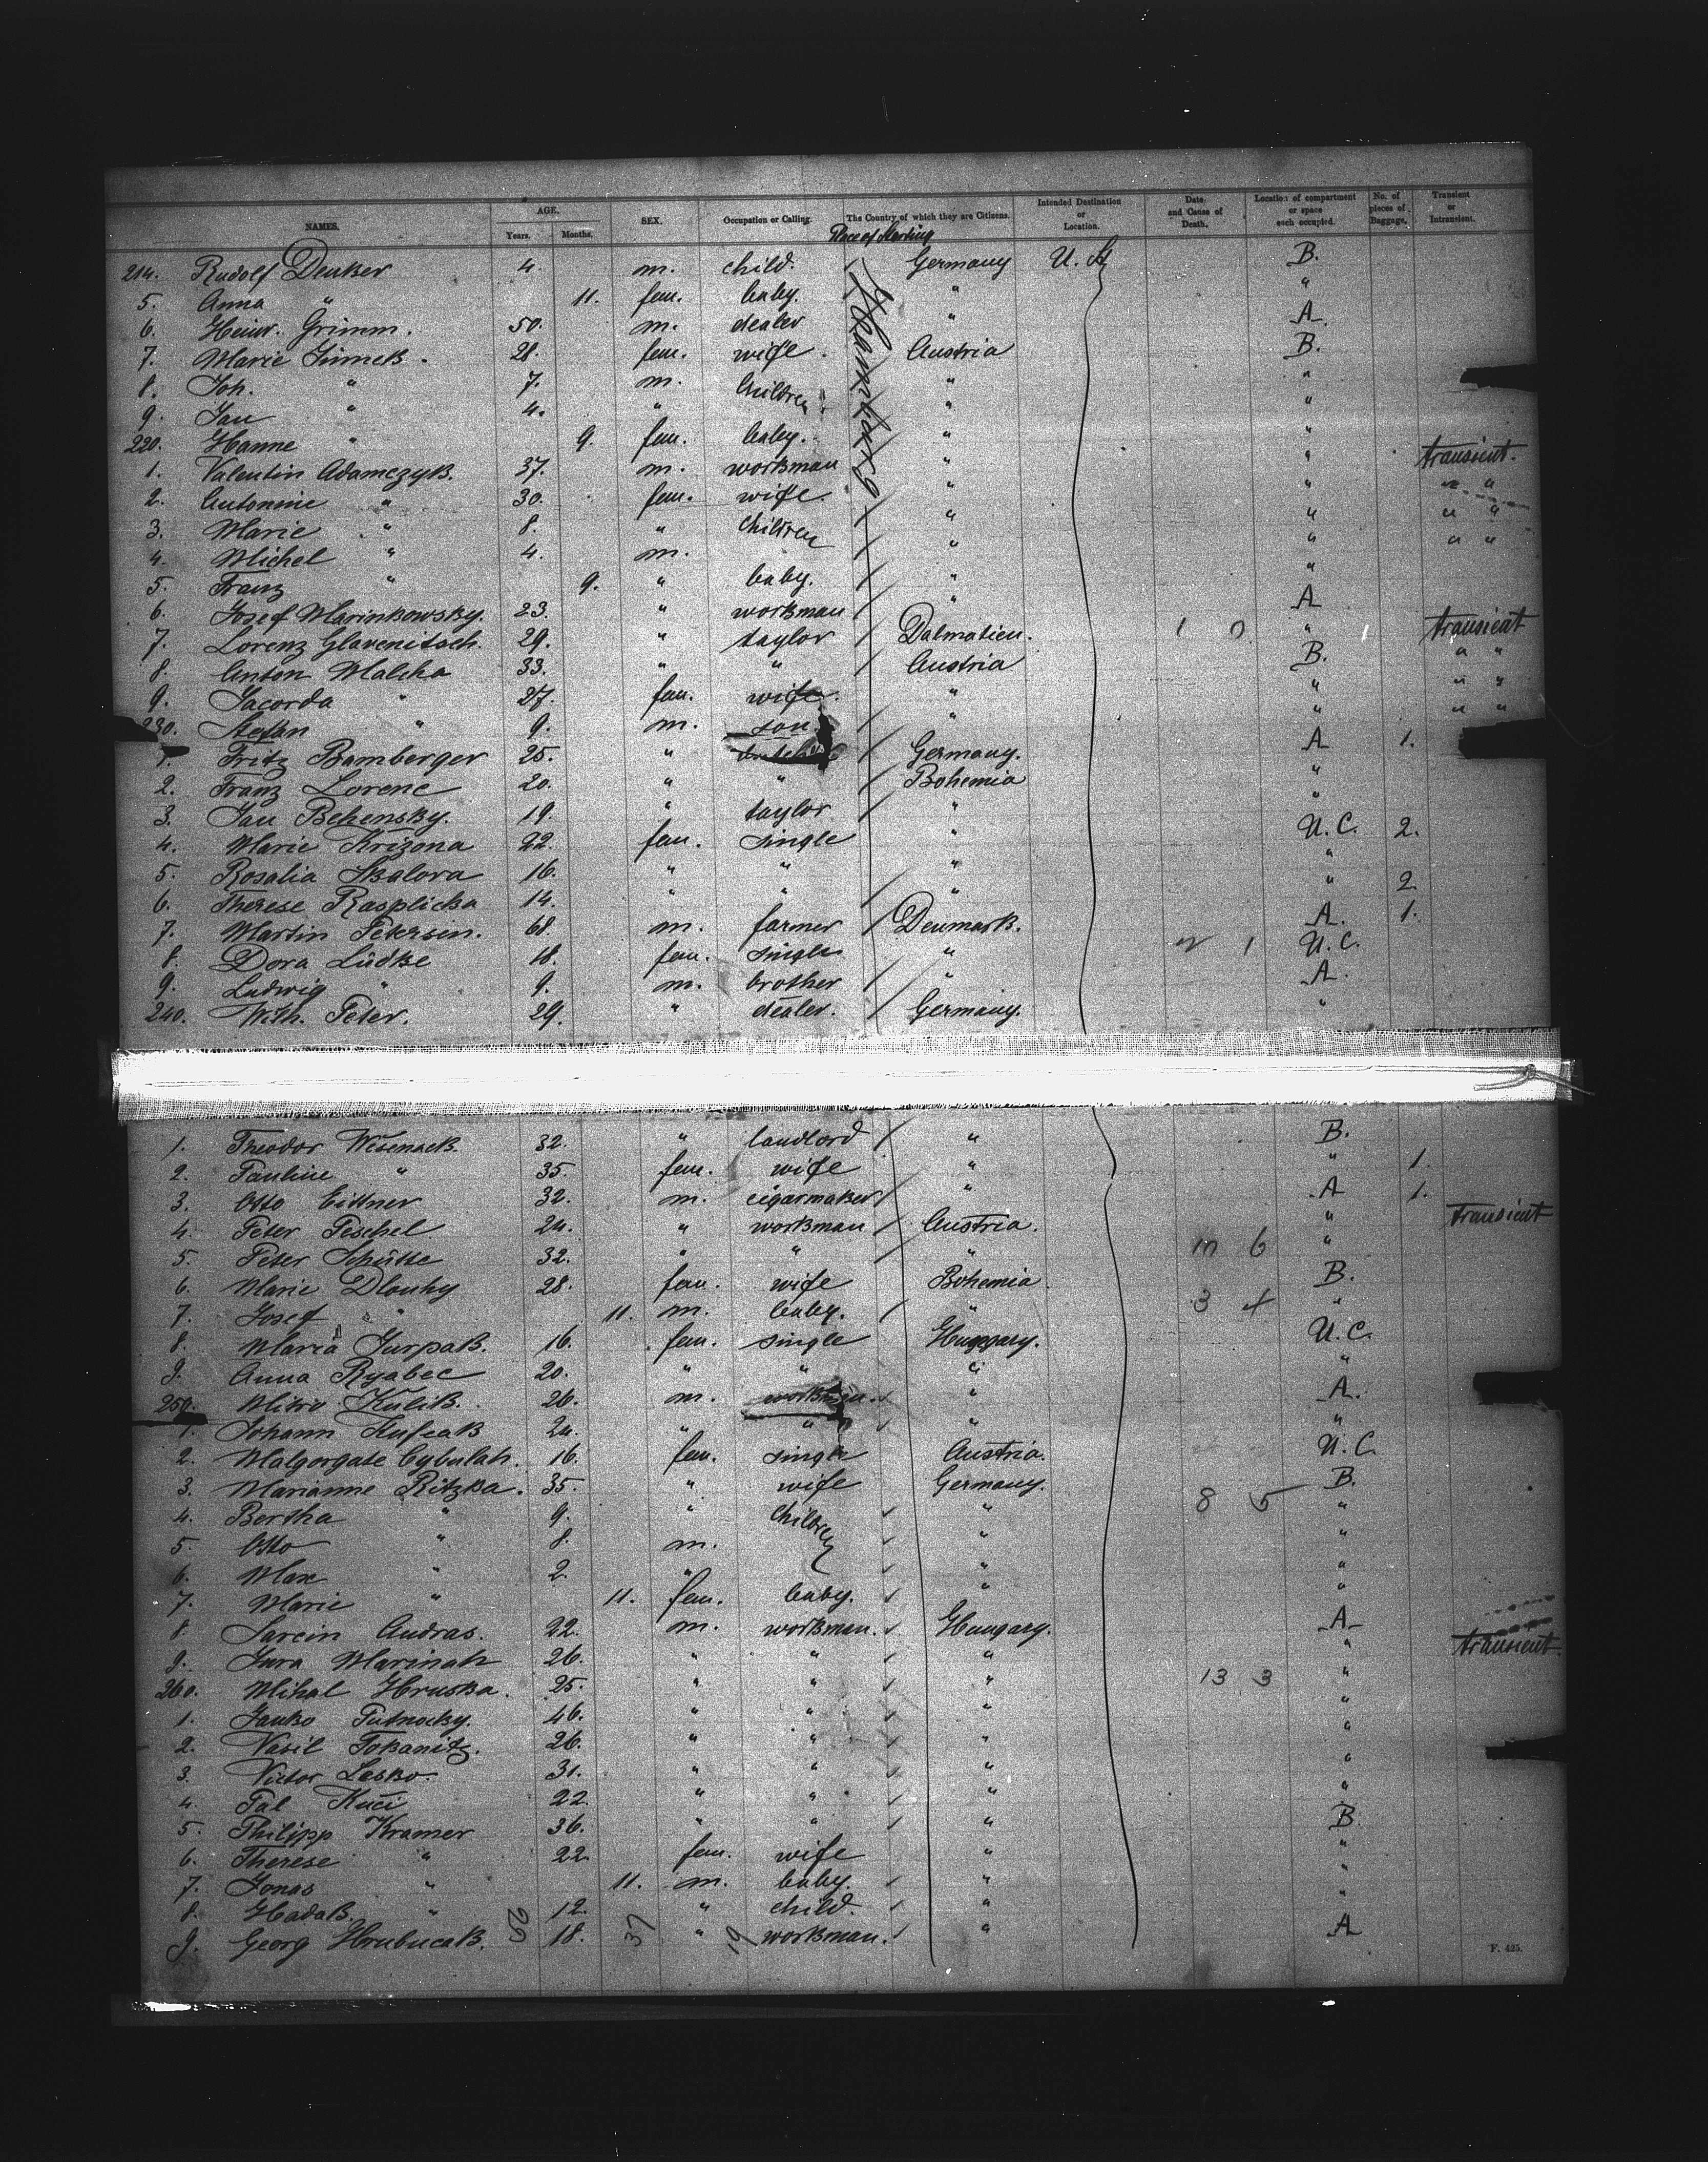 NAMES. AGE. Years. Months. SEX. Occupation or Calling. The Country of which they are Citizens. Intended Destination or Location. Date and Cause of Death. Location of compartment or space each occupied. No. of pieces of Baggage. Transient or Intransient.
Place of Starting
Hamburg
214. Rudolf Denker 4. m. child. Germany U. St. B.
5. Anna " 11. fem. baby. " "
6. Heinr. Grimm. 50. m. dealer " A.
7. Marie Jinnek. 28. fem. wife. Austria B.
8. Joh. " 7. m. children " "
9. Jan " 4. " " "
220. Hanne " 9. fem. baby. " "
1. Valentin Adamczyk. 37. m. workman " " transient.
2. Antonine " 30. fem. wife. " " " "
3. Marie " 8. " children " " " "
4. Michel " 4. m. " " " "
5. Franz " 9. " baby. " "
6. Josef Marinkowsky. 23. " workman " A
7. Lorenz Glavenitsch. 29. " taylor Dalmatien. 1 0 " transient
8. Anton Malcha 33. " " Austria B. " "
9. Jacorda " 27. fem. wife. " " " "
230. Stefan " 9. m. son. " " " "
1. Fritz Bamberger 25. " Germany. A 1.
2. Franz Lorenc 20. " " Bohemia "
3. Jan Behensky. 19. " taylor " "
4. Marie Krizona 22. fem. single " U.C. 2.
5. Rosalia Skalova 16. " " " "
6. Therese Rasplicka 14. " " " " 2
7. Martin Petersin. 68. m. farmer Denmark. A. 1.
8. Dora Lüdke 18. fem. single " 2 1 U.C.
9. Ludwig " 9. m. brother " A.
240. Wilh. Peter. 29. " dealer. Germany. "
1. Theodor Wisenack. 32. " landlord " B.
2. Pauline " 35. fem. wife " " 1.
3. Otto Cittner 32. m. cigarmaker " A 1.
4. Peter Peschel 24. " workman Austria. " transient
5. Peter Schütte 32. " " " 10 6 "
6. Marie Dlouhy 28. fem. wife Bohemia. B.
7. Josef " 11. m. baby. " 3 4 "
8. Maria Jurpak. 16. fem. single Hungary. U.C.
9. Anna Ryabec 20. " " " "
250. Mitro Kulik. 26. m. workman. " A.
1. Johann Kufcak 24. " " " "
2. Malgorgate Cybulah. 16. fem. single Austria. U.C
3. Marianne Ritzka. 35. " wife Germany. B.
4. Bertha " 9. " children " 8 5 "
5. Otto " 8. m. " "
6. Max " 2. " " "
7. Marie " 11. fem. baby. " "
8. Sarcin Andras. 22. m. workman. Hungary. A
9. Jura Marinah 26. " " " " transient
260. Mihal Hruska. 25. " " " 13 3 "
1. Janko Putnocky. 46. " " " "
2. Vasil Tokanitz. 26. " " " "
3. Victor Lesko. 31. " " " "
4. Pal Kuci 22. " " " "
5. Philipp Kramer 36. " " " B.
6. Therese " 22. fem. wife " "
7. Jonas " 11. m. baby. " "
8. Hadak. " 12. " child " "
9. Georg Hrubucak. 18. " workman. " A
56 37 19
F. 425.